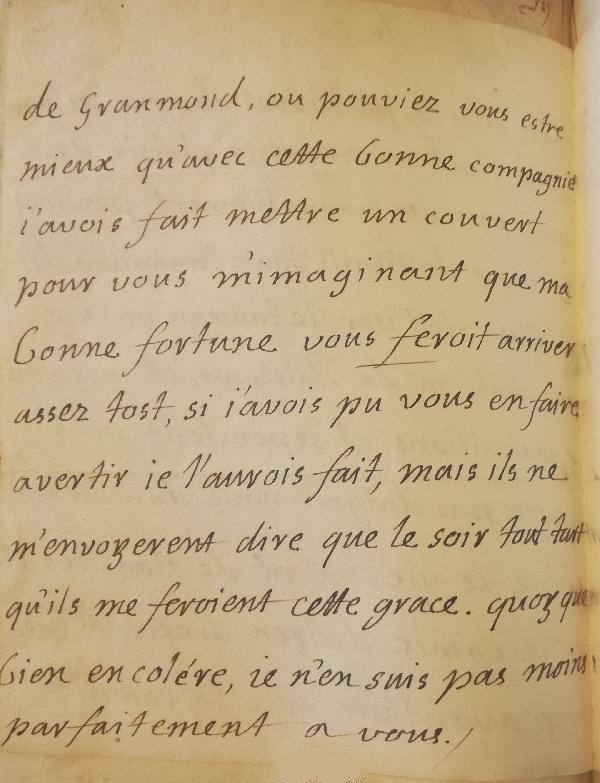 de Granmond, ou pouviez vous estre
mieux qu'avec cette bonne compagnie
i'avois fait mettre un couvert
pour vous m'imaginant que ma
bonne fortune vous feroit arriver
assez tost, si i'avois pu vous en faire
avertir ie l'aurois fait, mais ils ne
m'envoyerent dire que le soir tout tart
qu'ils me feroient cette grace. quoy que
bien en colére, ie n'en suis pas moins
parfaitement a vous./